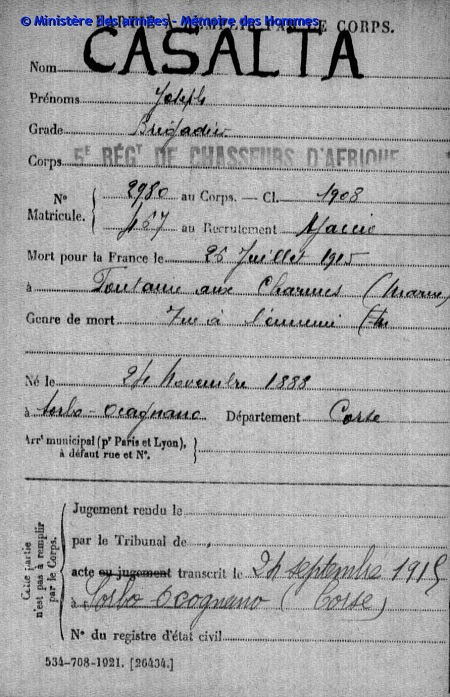 © Ministère des armées - Mémoire des Hommes
PARTIE À REMPLIR PAR LE CORPS.
Nom CASALTA
Prénoms Joseph
Grade Brigadier
Corps 5E RÉGT DE CHASSEURS D'AFRIQUE
N° 2980 au Corps. — Cl. 1908
Matricule. 467 au Recrutement Ajaccio
Mort pour la France le 26 Juillet 1915
à Fontaine aux Charmes (Marne)
Genre de mort Tué à l'ennemi
Né le Novembre 1888
à Sorbo-Ocagnano Département Corse
Arrt municipal (pr Paris et Lyon),
à défaut rue et N°.
Cette partie
n'est pas à remplir
par le Corps.
Jugement rendu le
par le Tribunal de
acte ou jugement transcrit le 24 septembre 1915
à Sorbo Ocognano (Corse)
N° du registre d'état civil
534-708-1921. [26434.]